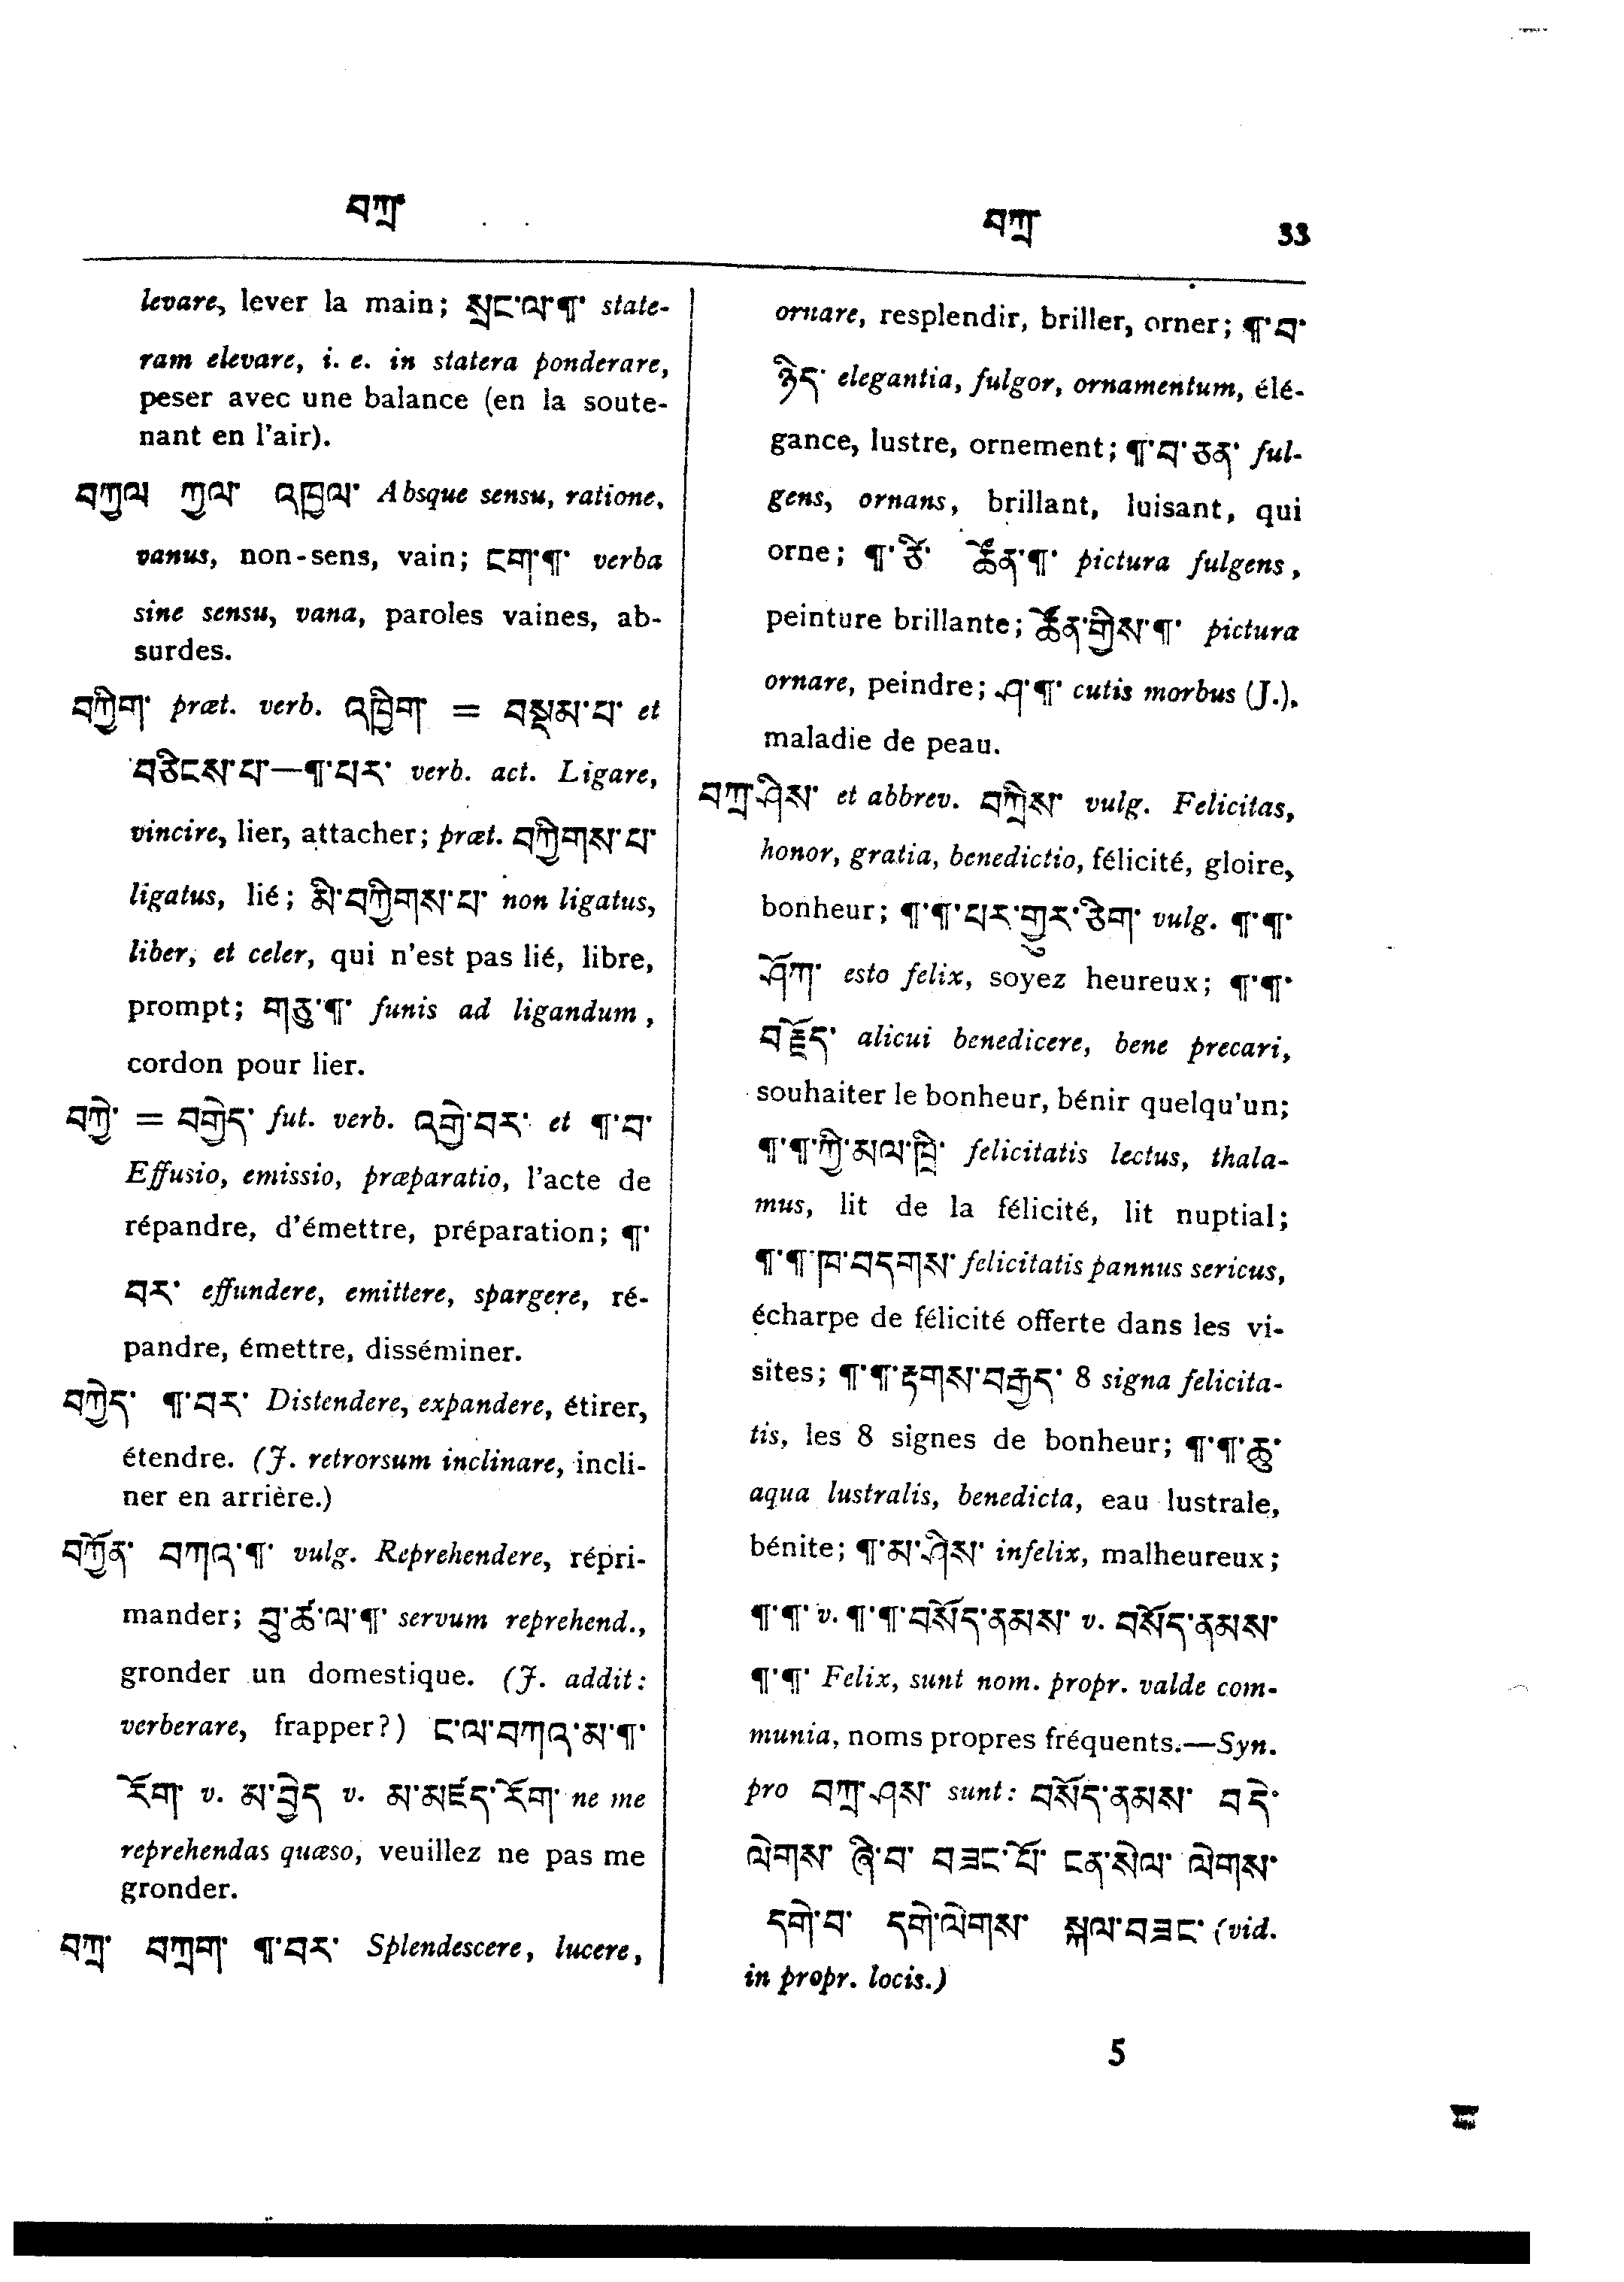 བཀྲ
བཀྲ 33
levare, lever la main; སྲང་ལ་¶་ state-
ram elevare, i. e. in statera ponderare,
peser avec une balance (en la soute-
nant en l'air).
བཀྱལ ཀྱལ་ འཁྱལ་ Absque sensu, ratione,
vanus, non-sens, vain; ངག་¶་ verba
sine sensu, vana, paroles vaines, ab-
surdes.
བཀྱིག་ præt. verb. འཁྱིག་ = བསྡམ་པ་ et
བཅིངས་པ་—¶་པར་ verb. act. Ligare,
vincire, lier, attacher; præt. བཀྱིགས་པ་
ligatus, lié; མི་བཀྱིགས་པ་ non ligatus,
liber, et celer, qui n'est pas lié, libre,
prompt; གཅུ་¶་ funis ad ligandum,
cordon pour lier.
བཀྱེ་ = བགྱེད་ fut. verb. འགྱེ་བར་ et ¶་བ་
Effusio, emissio, præparatio, l'acte de
répandre, d'émettre, préparation; ¶་
བར་ effundere, emittere, spargere, ré-
pandre, émettre, disséminer.
བཀྱེད་ ¶་བར་ Distendere, expandere, étirer,
étendre. (J. retrorsum inclinare, incli-
ner en arrière.)
བཀྱོན་ བཀའ་¶་ vulg. Reprehendere, répri-
mander; བུ་ཚ་ལ་¶་ servum reprehend.,
gronder un domestique. (J. addit:
verberare, frapper?) ང་ལ་བཀའ་མ་¶་
རོག་ v. མ་བྱེད v. མ་མཛད་རོག་ ne me
reprehendas quæso, veuillez ne pas me
gronder.
བཀྲ་ བཀྲག་ ¶་བར་ Splendescere, lucere,
ornare, resplendir, briller, orner; ¶་བ་
ཉིད་ elegantia, fulgor, ornamentum, élé-
gance, lustre, ornement; ¶་བ་ཅན་ ful-
gens, ornans, brillant, luisant, qui
orne; ¶་ཙི་ ཚོན་¶་ pictura fulgens,
peinture brillante; ཚོན་གྱིས་¶་ pictura
ornare, peindre; ཤ་¶་ cutis morbus (J.),
maladie de peau.
བཀྲ་ཤིས་ et abbrev. བཀྲིས་ vulg. Felicitas,
honor, gratia, benedictio, félicité, gloire,
bonheur; ¶་¶་པར་གྱུར་ཅིག་ vulg. ¶་¶་
ཤོཀ་ esto felix, soyez heureux; ¶་¶་
བརྗོད་ alicui benedicere, bene precari,
souhaiter le bonheur, bénir quelqu'un;
¶་¶་ཀྱི་མལ་ཁྲི་ felicitatis lectus, thala-
mus, lit de la félicité, lit nuptial;
¶་¶་ཁ་བདགས་ felicitatis pannus sericus,
écharpe de félicité offerte dans les vi-
sites; ¶་¶་རྟགས་བརྒྱད་ 8 signa felicita-
tis, les 8 signes de bonheur; ¶་¶་ཆུ་
aqua lustralis, benedicta, eau lustrale,
bénite; ¶་མ་ཤིས་ infelix, malheureux;
¶་¶་ v. ¶་¶་བསོད་ནམས་ v. བསོད་ནམས་
¶་¶་ Felix, sunt nom. propr. valde com-
munia, noms propres fréquents.—Syn.
pro བཀྲ་ཤས་ sunt: བསོད་ནམས་ བདེ་
ལེགས་ ཞི་བ་ བཟང་པོ་ ངན་སེལ་ ལེགས་
དགེ་བ་ དགེ་ལེགས་ སྐལ་བཟང་ (vid.
in propr. locis.)
5